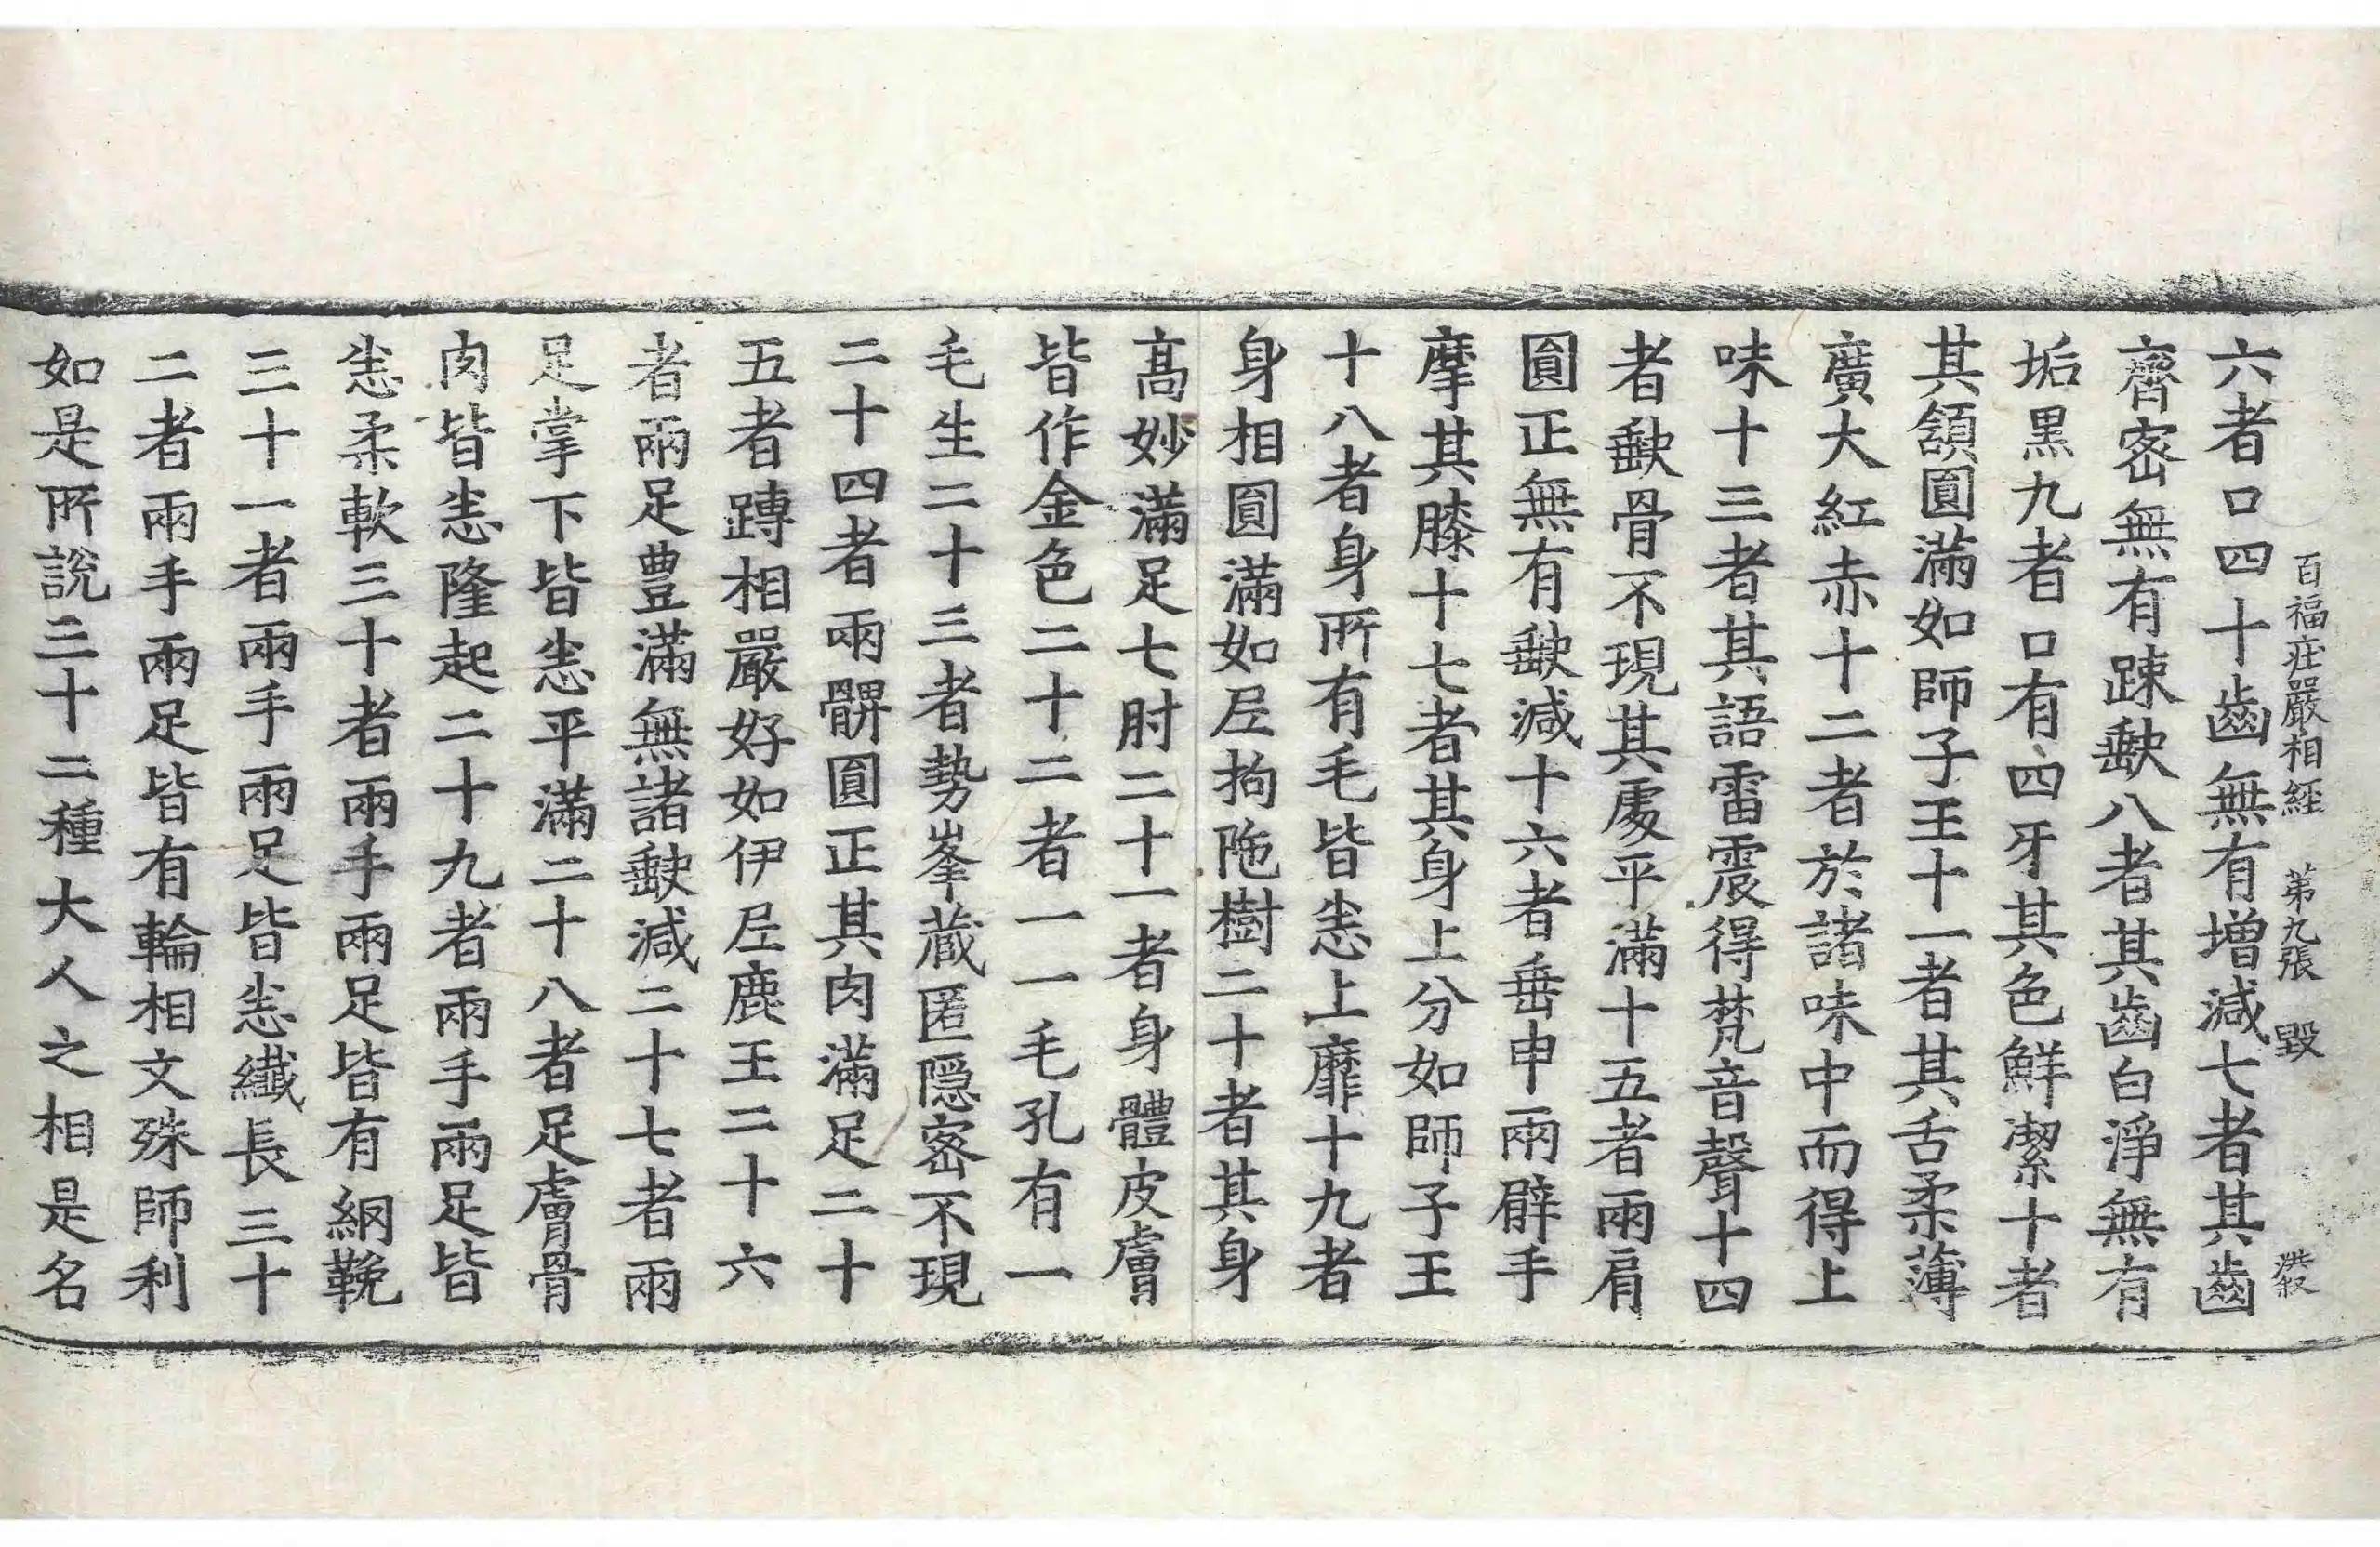 百福庄嚴相経　第九張　毀　洪叙
六者口四十齒無有增減七者其齒
齊密無有踈𡙇八者其齒白淨無有
垢黑九者口有四牙其色鮮潔十者
其頷圓滿如師子王十一者其舌柔薄
廣大紅赤十二者於諸味中而得上
味十三者其語雷震得梵音聲十四
者𡙇骨不現其處平滿十五者兩肩
圓正無有𡙇減十六者垂申兩臂手
摩其膝十七者其身上分如師子王
十八者身所有毛皆悉上靡十九者
身相圓滿如尼拘陁樹二十者其身
高妙滿足七肘二十一者身體皮膚
皆作金色二十二者一一毛孔有一
毛生二十三者勢峯藏匿隱密不現
二十四者兩髀圓正其肉滿足二十
五者䏝相嚴好如伊尼鹿王二十六
者兩足豊滿無諸𡙇減二十七者兩
足掌下皆悉平滿二十八者足膚骨
肉皆悉隆起二十九者兩手兩足皆
悉柔軟三十者兩手兩足皆有網鞔
三十一者兩手兩足皆悉纖長三十
二者兩手兩足皆有輪相文殊師利
如是所說三十二種大人之相是名